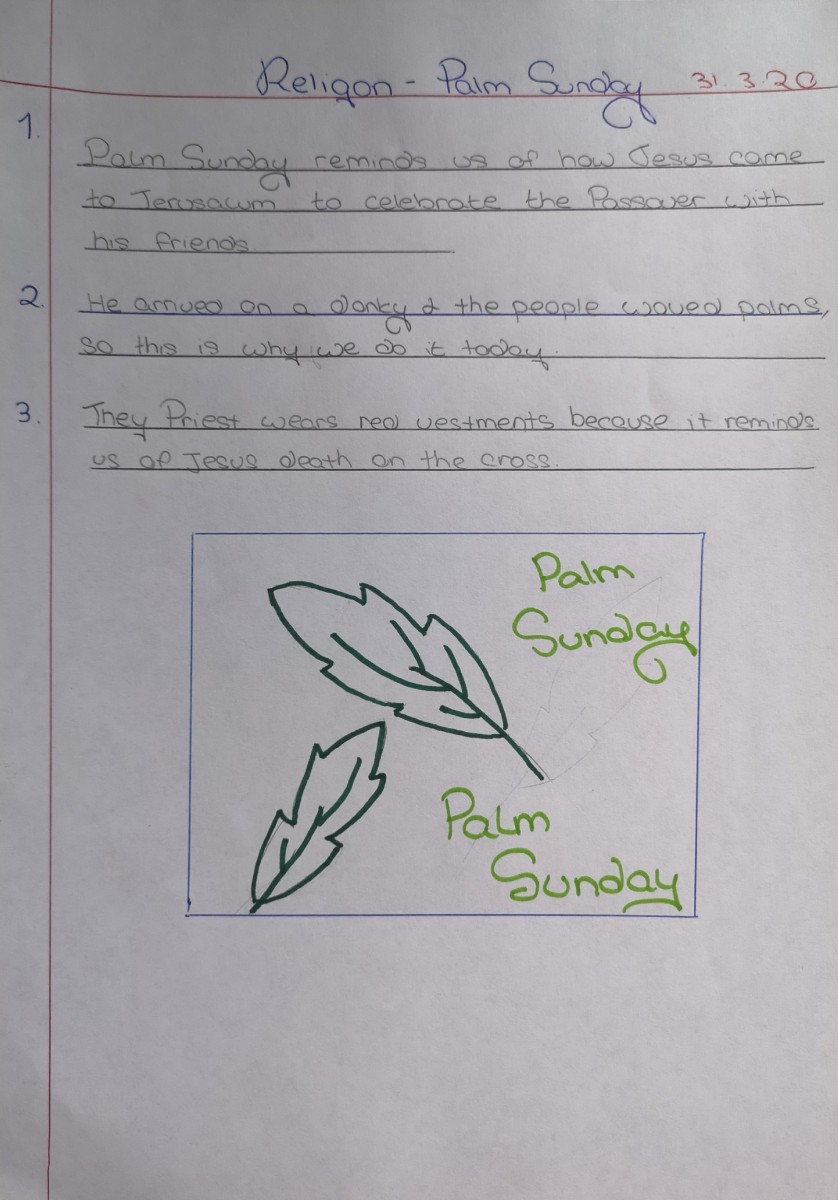 Religon - Palm Sunday 31.3.20
1.
Palm Sunday reminds us of how Jesus came
to Jerusalum to celebrate the Passover with
his friends.
2. He arrived on a donky & the people waved palms,
so this is why we do it today.
3. They Priest wears red vestments because it reminds
us of Jesus death on the cross.
Palm
Sunday
Palm
Sunday